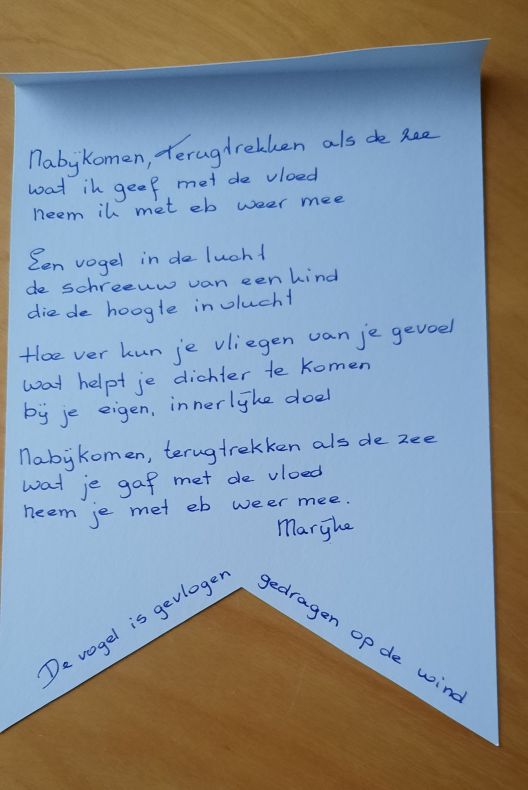 Nabijkomen, terugtrekken als de zee
wat ik geef met de vloed
neem ik met eb weer mee
Een vogel in de lucht
de schreeuw van een kind
die de hoogte in vlucht
Hoe ver kun je vliegen van je gevoel
wat helpt je dichter te komen
bij je eigen, innerlijke doel
Nabijkomen, terugtrekken als de zee
wat je gaf met de vloed
neem je met eb weer mee.
Marijke
De vogel is gevlogen gedragen op de wind